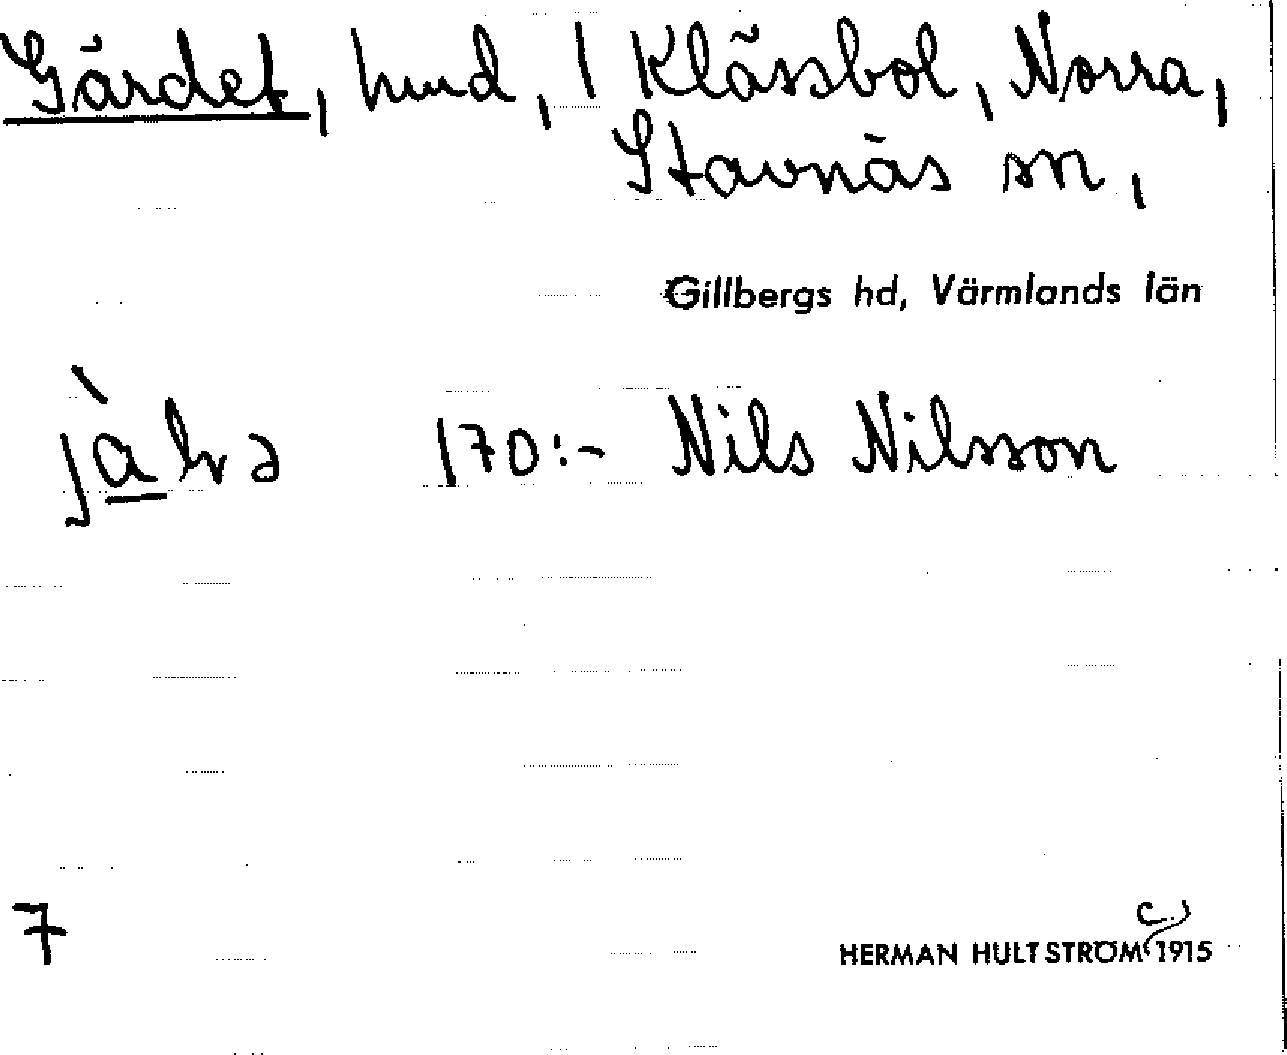 Gärdet, hmd, 1 Klässbol, Norra,
Stavnäs sn,
Gillbergs hd, Värmlands län
170:- Nils Nilsson
7
c.
HERMAN HULTSTRÖM 1915